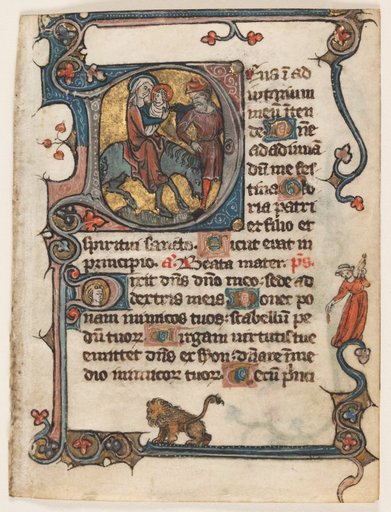 Deus ī ad
iutorium
meū īten
de Dne
ad adiuua
dū me fes
tina Glo
ria patri
et filio et
spiritui sancto. Sicut erat in
principio. a. Beata mater. ps.
Dixit dns dno meo: sede ad
dextris meis Donec po
nam inimicos tuos: scabellū pe
dū tuorꝝ Uirgam uirtutis tue
emittet dns ex syon: dnare ī me
dio inimicorꝝ tuorꝝ Tecū prīci